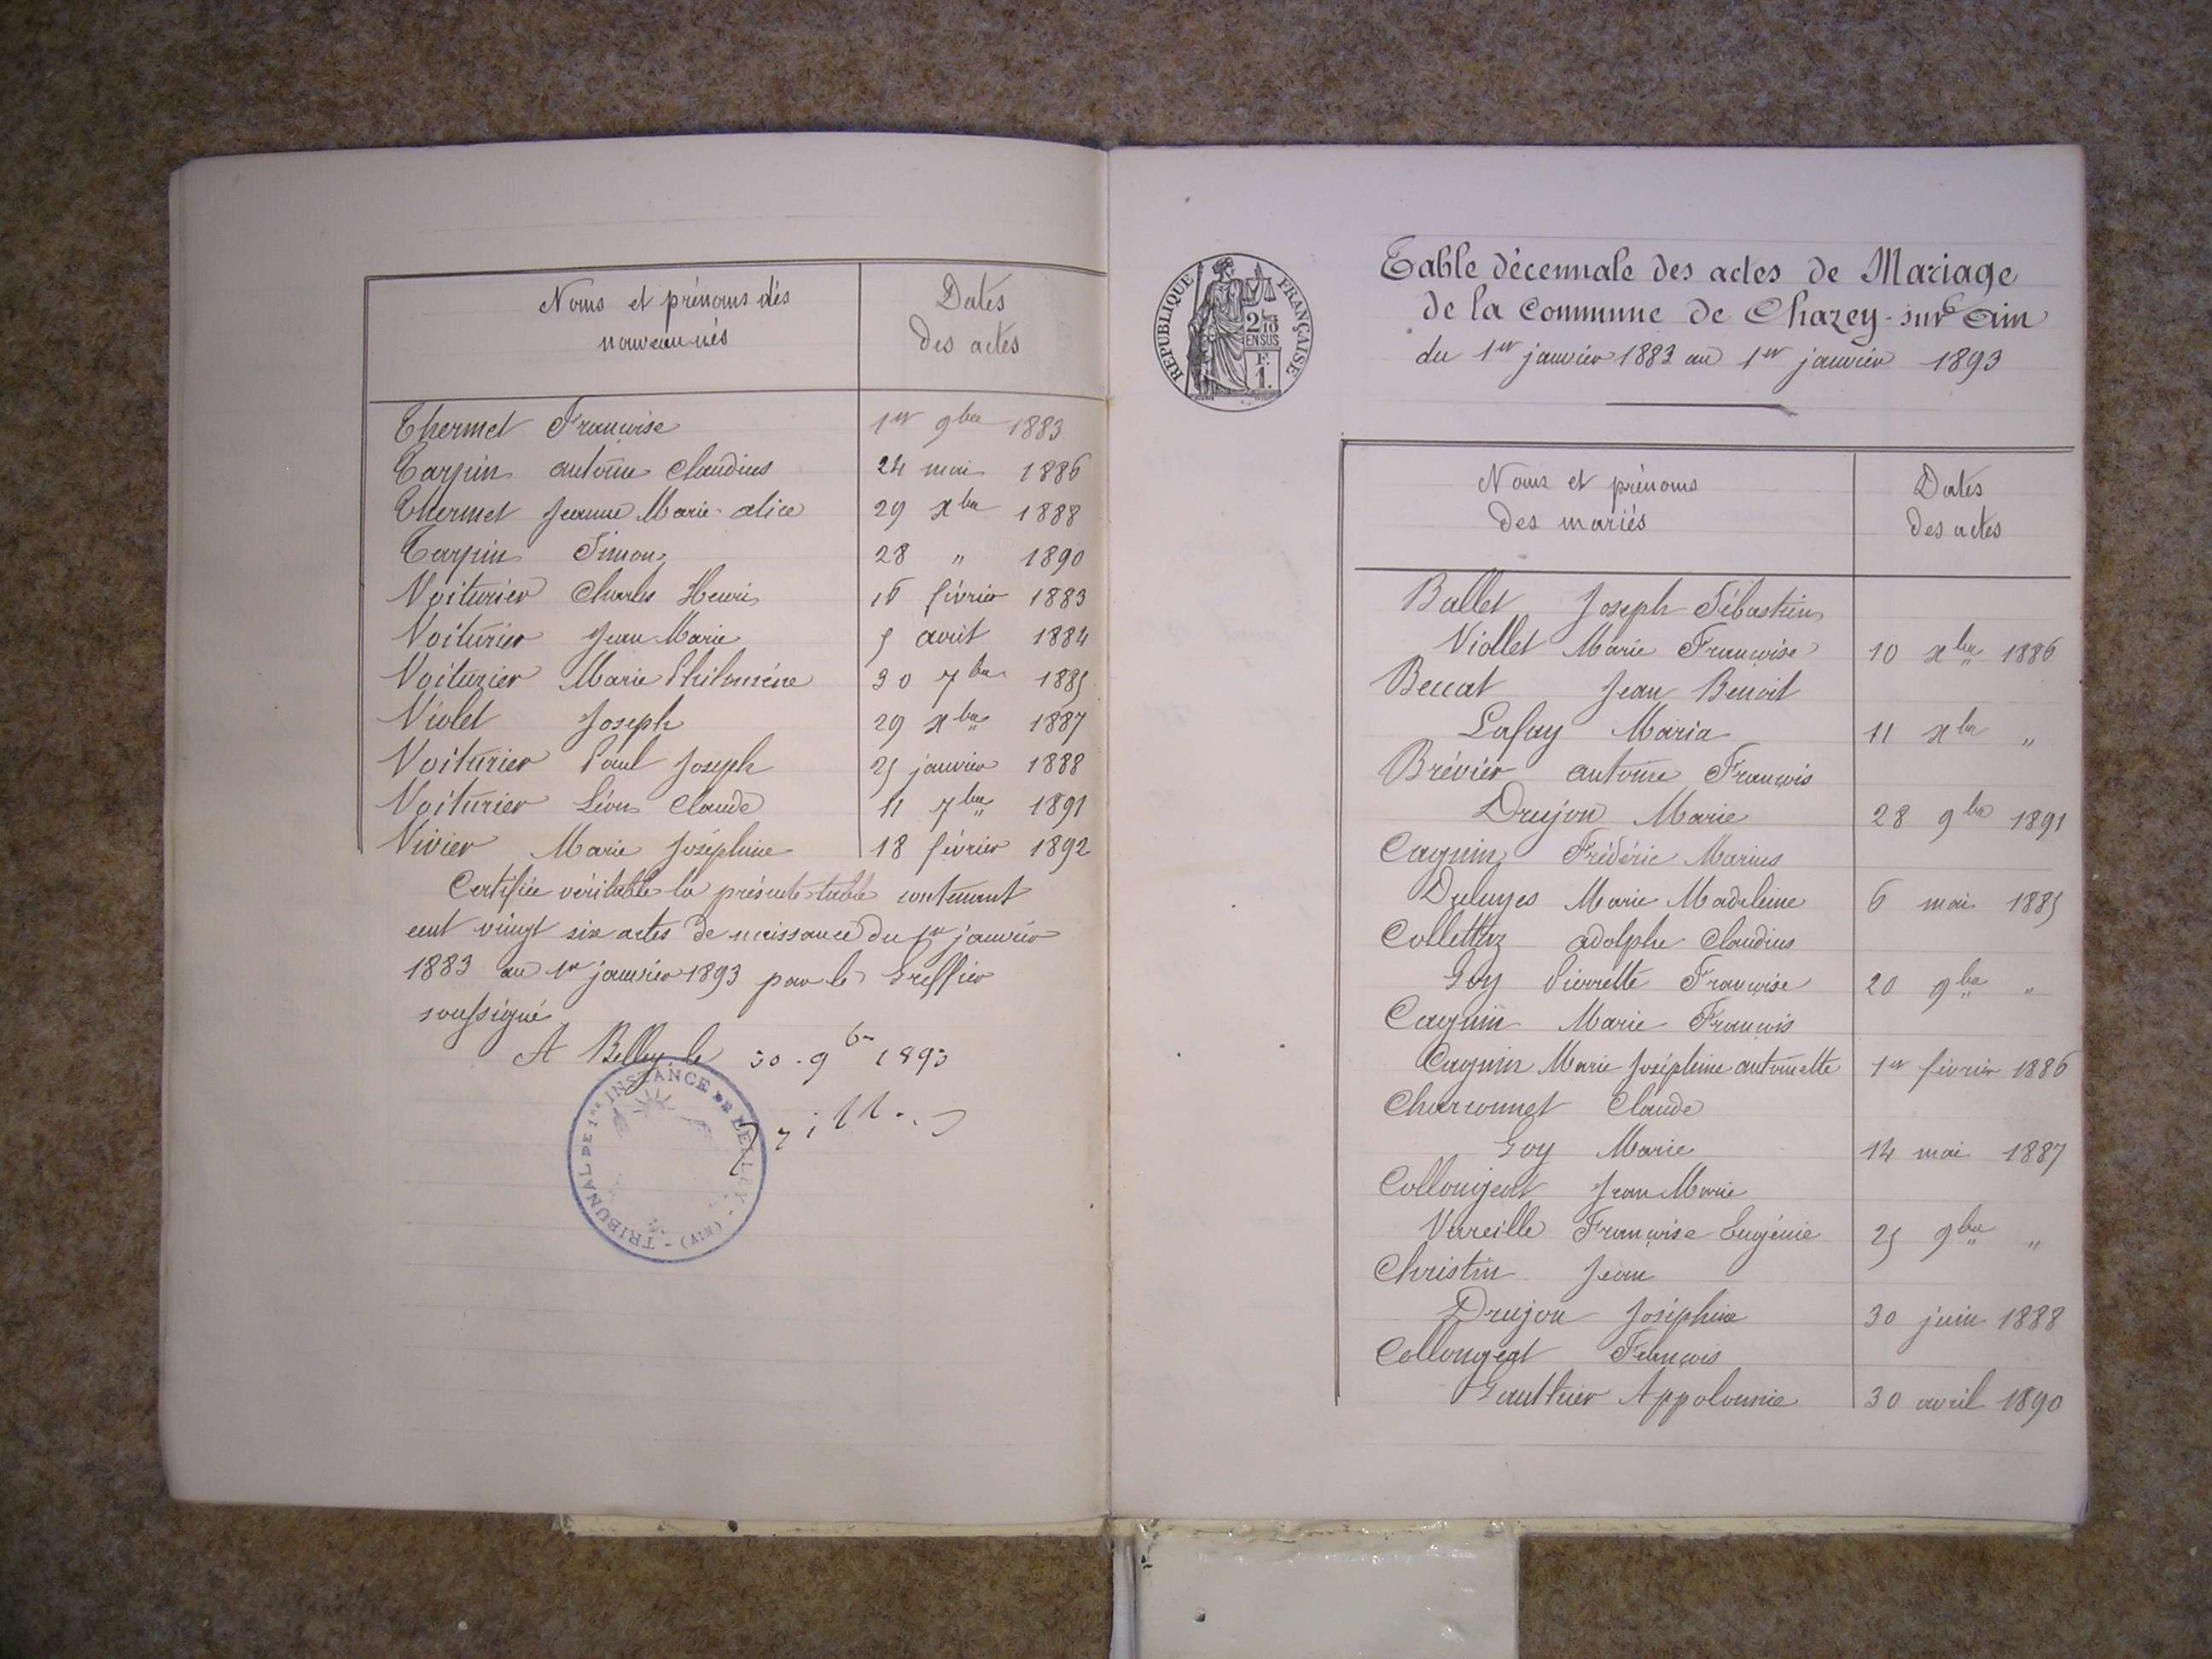 Noms et prénoms des
nouveau-nés
Dates
des actes
Thermet Françoise 1er 9bre 1883
Tarpin antoine Claudius 24 mai 1886
Thermet Jeanne Marie-alice 29 xbre 1888
Tarpin Simon 28 " 1890
Voiturier Charles Henri 16 février 1883
Voiturier Jean-Marie 5 avril 1884
Voiturier Marie Philomène 30 7bre 1885
Violet Joseph 29 xbre 1887
Voiturier Paul Joseph 25 janvier 1888
Voiturier Léon Claude 11 7bre 1891
Vivier Marie Joséphine 18 février 1892
Certifiée véritable la présente table contenant
cent vingt six actes de naissance du 1er janvier
1883 au 1er janvier 1893 par le Greffier
soussigné
A Belley le 30 - 9bre 1893
TRIBUNAL DE 1re INSTANCE DE BELLEY - (AIN) -
RÉPUBLIQUE FRANÇAISE
2/10
EN SUS
F.
1.
Table décennale des actes de Mariage
de la Commune de Chazey-sur Ain
du 1er janvier 1883 au 1er janvier 1893
Noms et prénoms
des mariés
Dates
des actes
Ballet Joseph Sébastien
Viollet Marie Françoise 10 xbre 1886
Beccat Jean Benoit
Lafay Maria 11 xbre "
Brévier antoine François
Drujon Marie 28 9bre 1891
Cagnin Frédéric Marius
Marie Madeleine 6 mai 1885
Collettaz adolphe Claudius
Goy Pierrette Françoise 20 9bre "
Cagnin Marie François
Cagnin Marie Joséphine antoinette 1er février 1886
Charconnet Claude
Goy Marie 14 mai 1887
Collongeat Jean Marie
Verreille Françoise Eugénie 25 9bre "
Christin Jean
Drujon Joséphine 30 juin 1888
Collongeat François
Gauthier Appolonnie 30 avril 1890